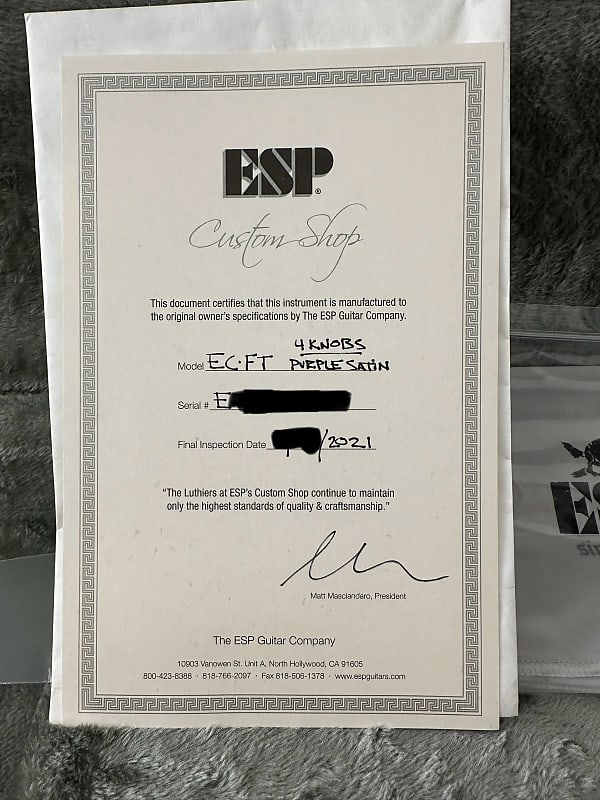 ESP®
Custom Shop
This document certifies that this instrument is manufactured to
the original owner's specifications by The ESP Guitar Company.
4 KNOBS
Model EC-FT PURPLE SATIN
Serial # E
Final Inspection Date /2021
"The Luthiers at ESP's Custom Shop continue to maintain
only the highest standards of quality & craftsmanship."
Matt Masciandaro, President
The ESP Guitar Company
10903 Vanowen St. Unit A, North Hollywood, CA 91605
800-423-8388 · 818-766-2097 · Fax 818-506-1378 · www.espguitars.com